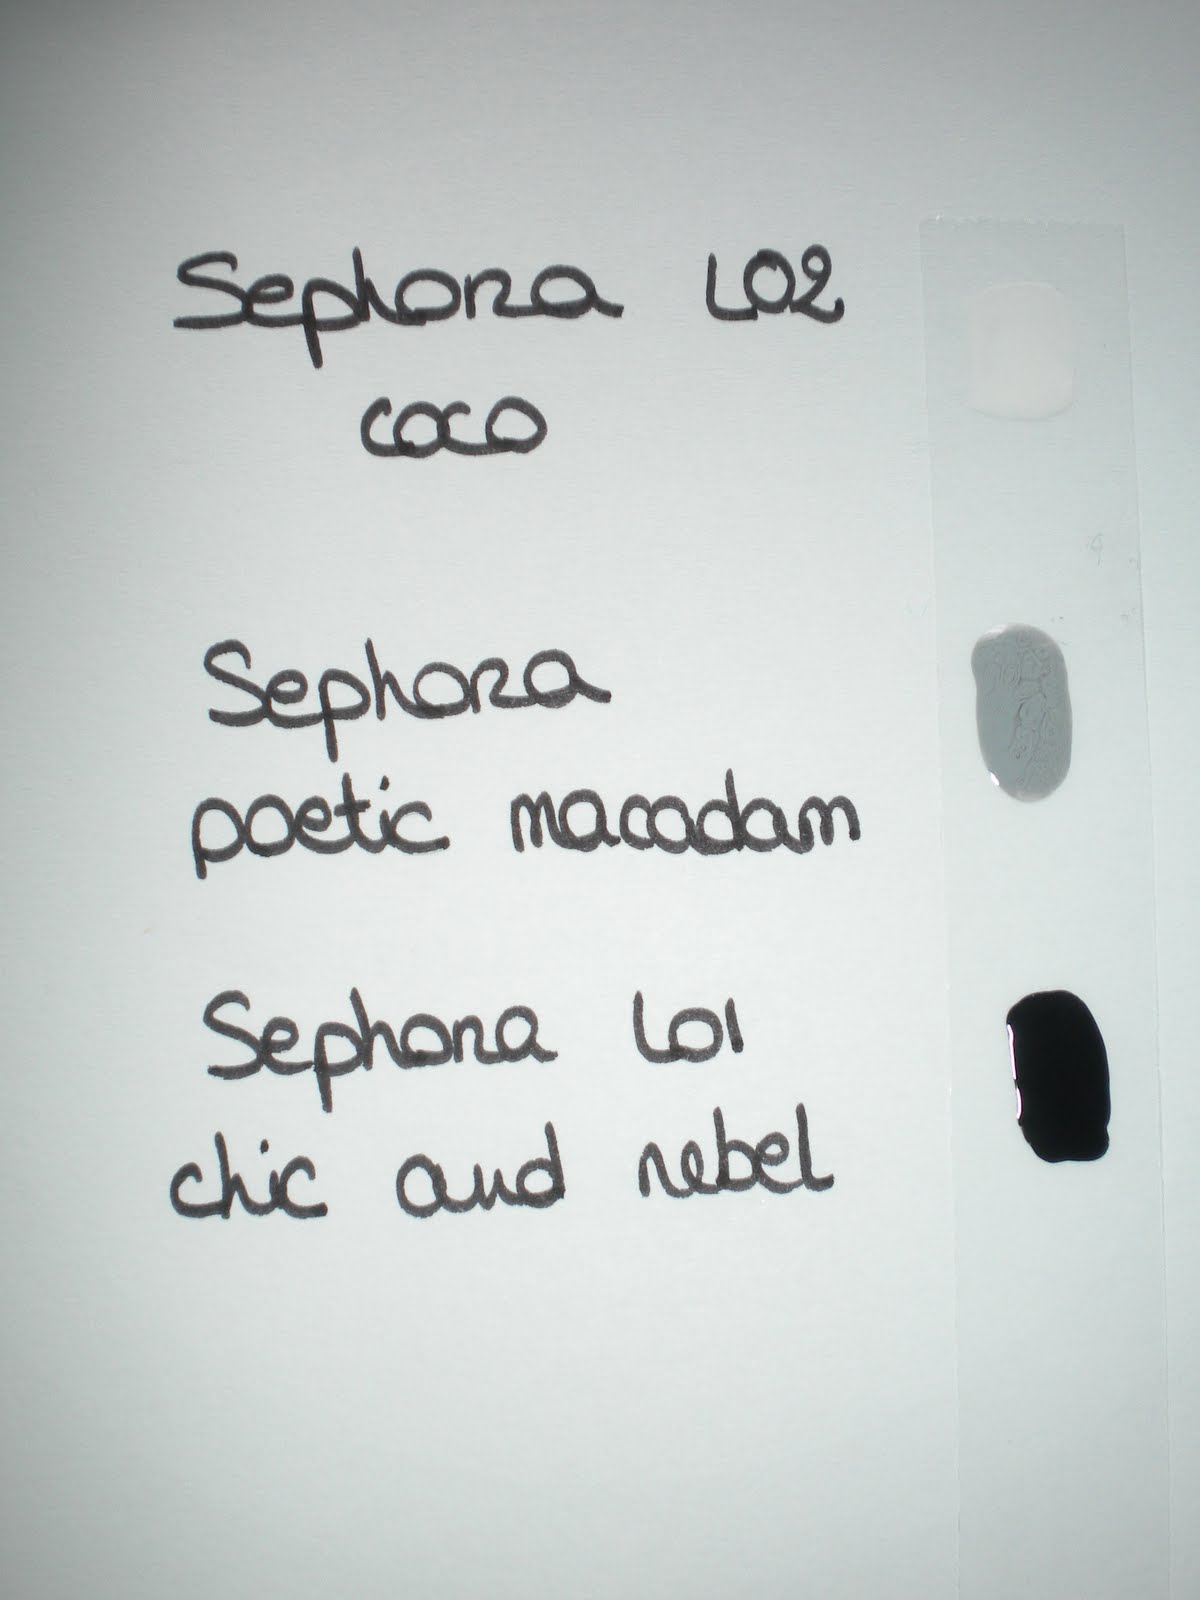 Sephora L02
coco
Sephora
poetic macadam
Sephora L01
chic and rebel